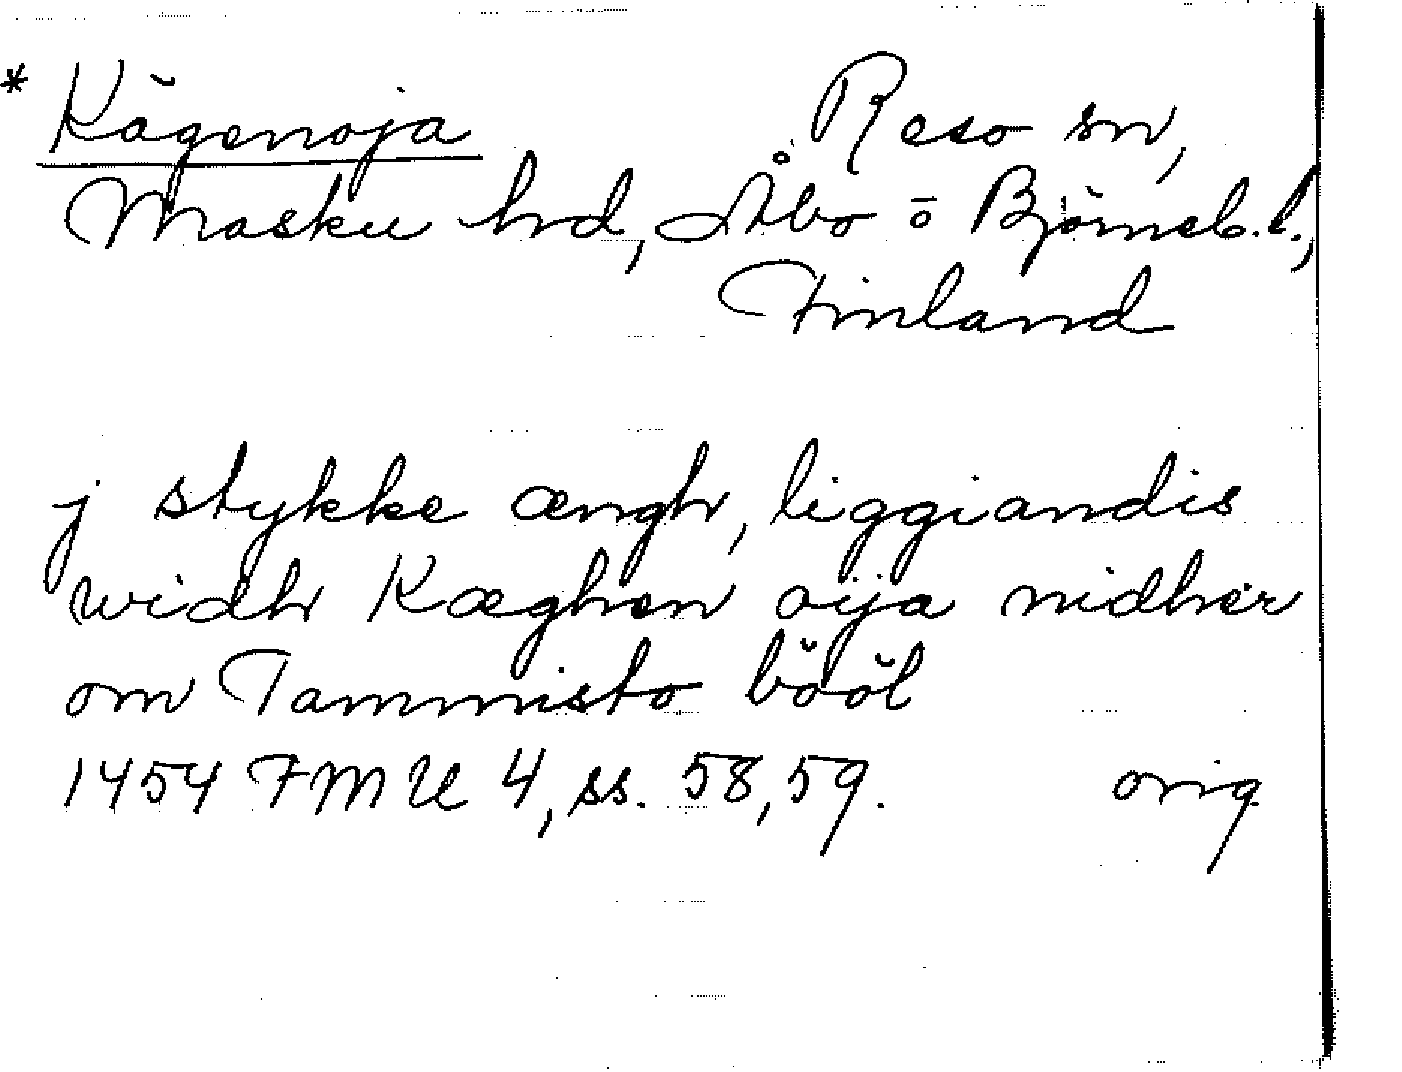 * Kägenoja Reso sn,
Masku hd, Åbo o Björneb. l.,
Finland
j stykke ængh, liggiandis
widh Kæghen oija nidher
om Tammisto böől
1454 FMU 4, ss. 58, 59. orig